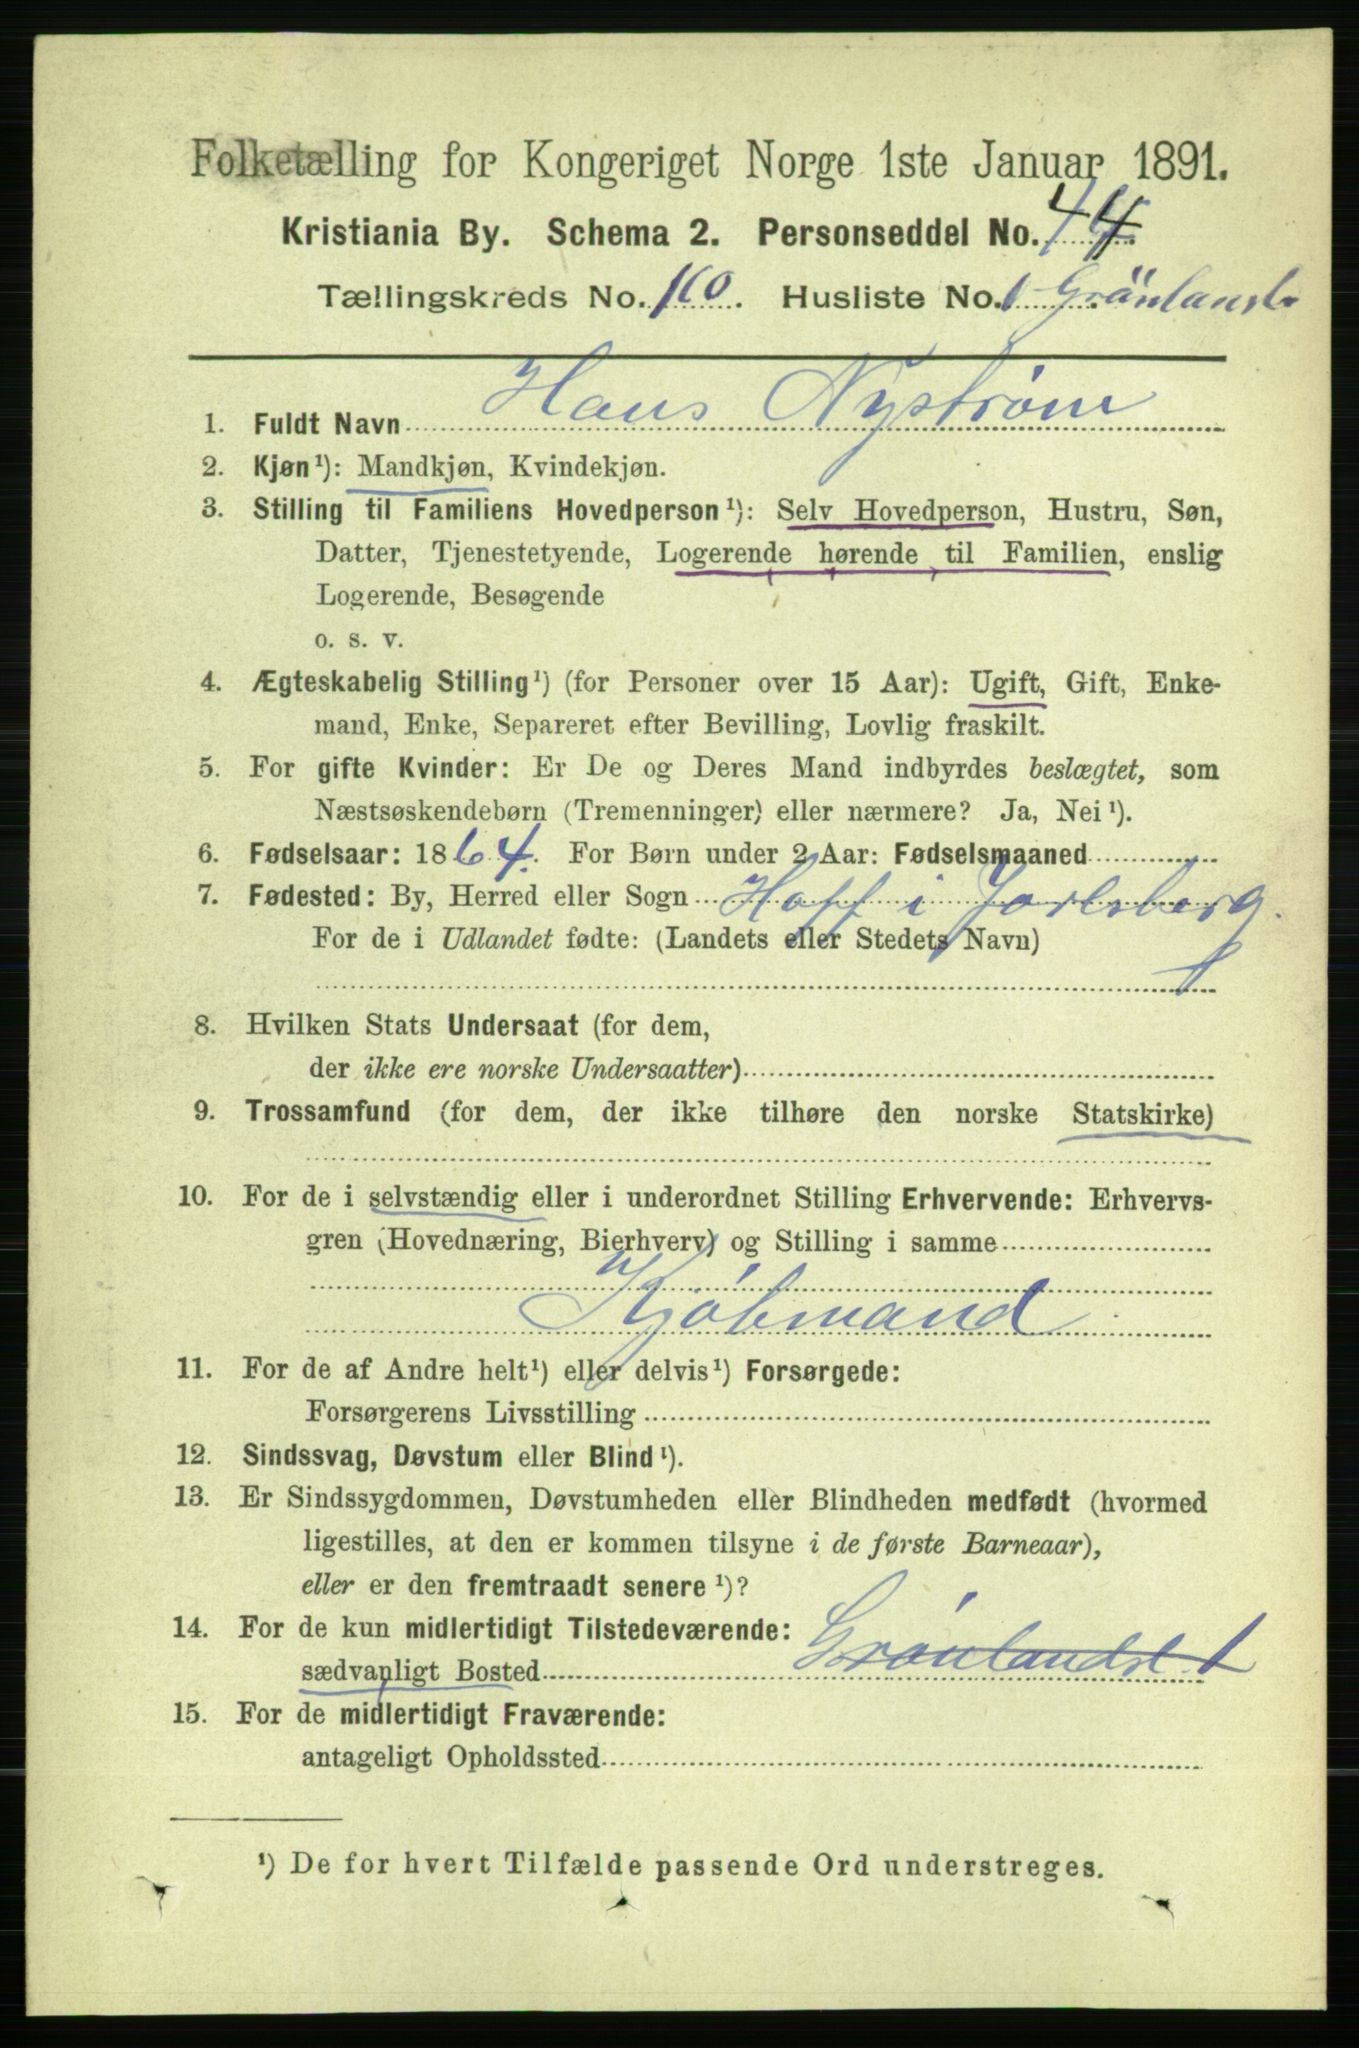 Folketælling for Kongeriget Norge 1ste Januar 1891.
Kristiania By. Schema 2. Personseddel No. 44
Tællingskreds No. 160. Husliste No. 1 Grönlandsl.
1. Fuldt Navn Hans Nystrøm
2. Kjøn¹): Mandkjøn, Kvindekjøn.
3. Stilling til Familiens Hovedperson¹): Selv Hovedperson, Hustru, Søn,
Datter, Tjenestetyende, Logerende hørende til Familien, enslig
Logerende, Besøgende
o. s. v.
4. Ægteskabelig Stilling¹) (for Personer over 15 Aar): Ugift, Gift, Enke-
mand, Enke, Separeret efter Bevilling, Lovlig fraskilt.
5. For gifte Kvinder: Er De og Deres Mand indbyrdes beslægtet, som
Næstsøskendebørn (Tremenninger) eller nærmere? Ja, Nei¹).
6. Fødselsaar: 1864. For Børn under 2 Aar: Fødselsmaaned
7. Fødested: By, Herred eller Sogn Hoff i Jarlsberg.
For de i Udlandet fødte: (Landets eller Stedets Navn)
8. Hvilken Stats Undersaat (for dem,
der ikke ere norske Undersaatter)
9. Trossamfund (for dem, der ikke tilhøre den norske Statskirke)
10. For de i selvstændig eller i underordnet Stilling Erhvervende: Erhvervs-
gren (Hovednæring, Bierhverv) og Stilling i samme
Kjøbmand
11. For de af Andre helt¹) eller delvis¹) Forsørgede:
Forsørgerens Livsstilling
12. Sindssvag, Døvstum eller Blind¹).
13. Er Sindssygdommen, Døvstumheden eller Blindheden medfødt (hvormed
ligestilles, at den er kommen tilsyne i de første Barneaar),
eller er den fremtraadt senere¹)?
14. For de kun midlertidigt Tilstedeværende:
sædvanligt Bosted Grönlandsl. 1
15. For de midlertidigt Fraværende:
antageligt Opholdssted
¹) De for hvert Tilfælde passende Ord understreges.